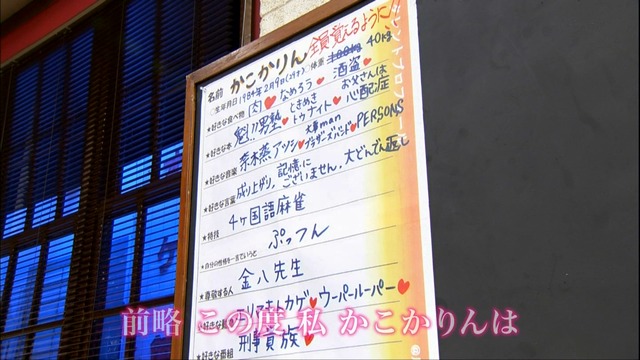 全員覚えるように!!
名前 かこかりん
生年月日 1984年2月9日(29才) 体重 100kg 40kg
★好きな食べ物 肉♥なめろう♥酒盗♥
★好きな本 魁!!男塾♥ときめきトゥナイト♥お父さんは心配症
★好きな音楽 奈木蒸アツシ♥大事manブラザーズバンド♥PERSONS
★好きな言葉 成り上がり。記憶にございません。大どんでん返し
★特技 4ヶ国語麻雀
★自分の性格を一言でいうと ぷっつん
★尊敬する人 金八先生
エリマキトカゲ♥ウーパールーパー♥
★好きな番組 刑事貴族♥
前略 この度 私 かこかりんは